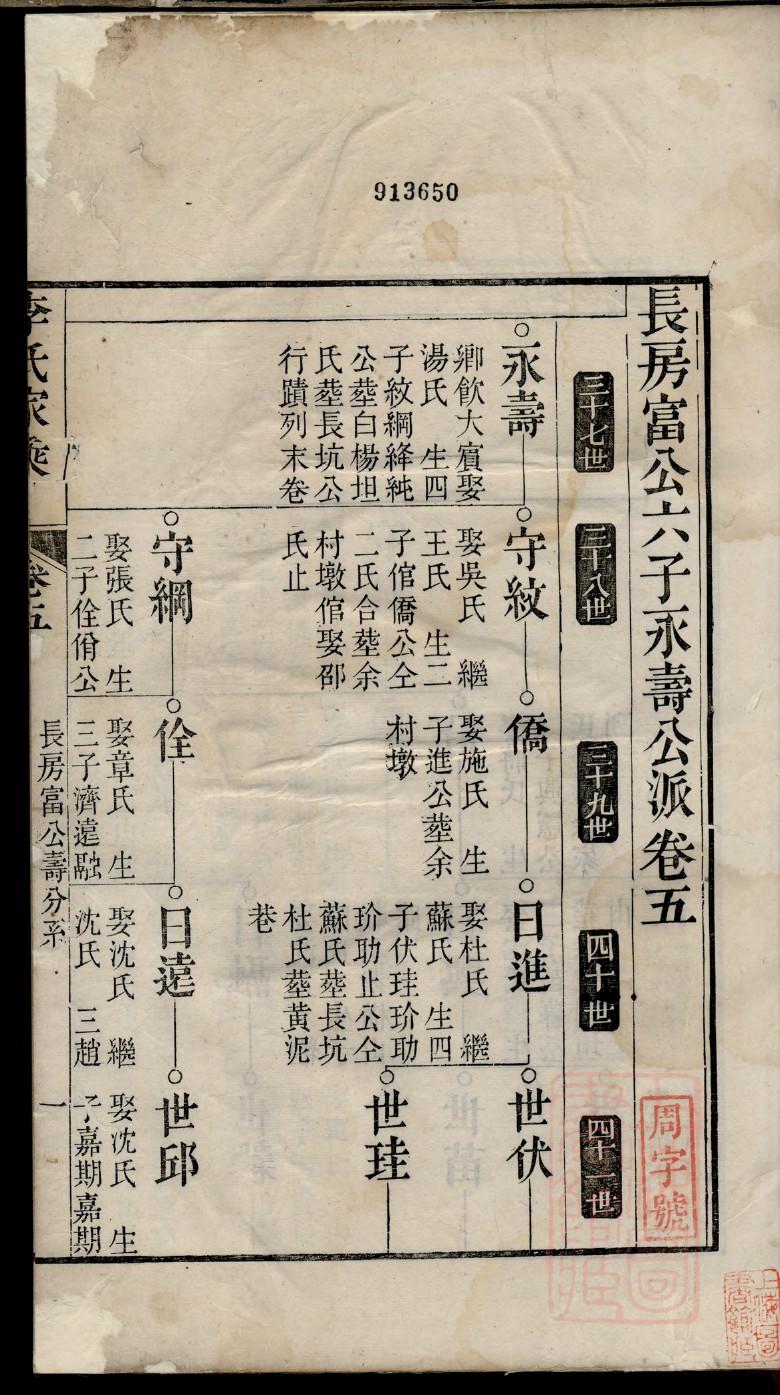 913650
長房富公六子永壽公派卷五
周字號
三十七世
三十八世
三十九世
四十世
四十一世
永壽
鄉飲大賓娶
湯氏 生四
子紋綱絳純
公塟白楊坦
氏塟長坑公
行蹟列末卷
守紋
娶吳氏 繼
王氏 生二
子倌僑公仝
二氏合塟余
村墩倌娶邵
氏止
僑
娶施氏 生
子進公塟余
村墩
日進
娶杜氏 繼
蘇氏 生四
子伏珪玠助
玠助止公仝
蘇氏塟長坑
杜氏塟黄泥
巷
世伏
世珪
守綱
娶張氏 生
二子佺佾公
佺
娶章氏 生
三子濟遠融
日遠
娶沈氏 繼
沈氏 三趙
世邱
娶沈氏 生
子嘉期嘉期
李氏家乘
卷五
長房富公壽分系
一